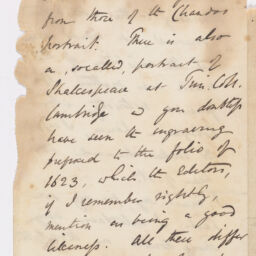 from those of the Chandos
portrait. There is also
a, socalled, portrait of
Shakespeare at Trin. Coll.
Cambridge & you doubtless
have seen the engraving
prefixed to the folio of
1623, which the Editors,
if I remember rightly,
mention as being a good
likeness. All these differ